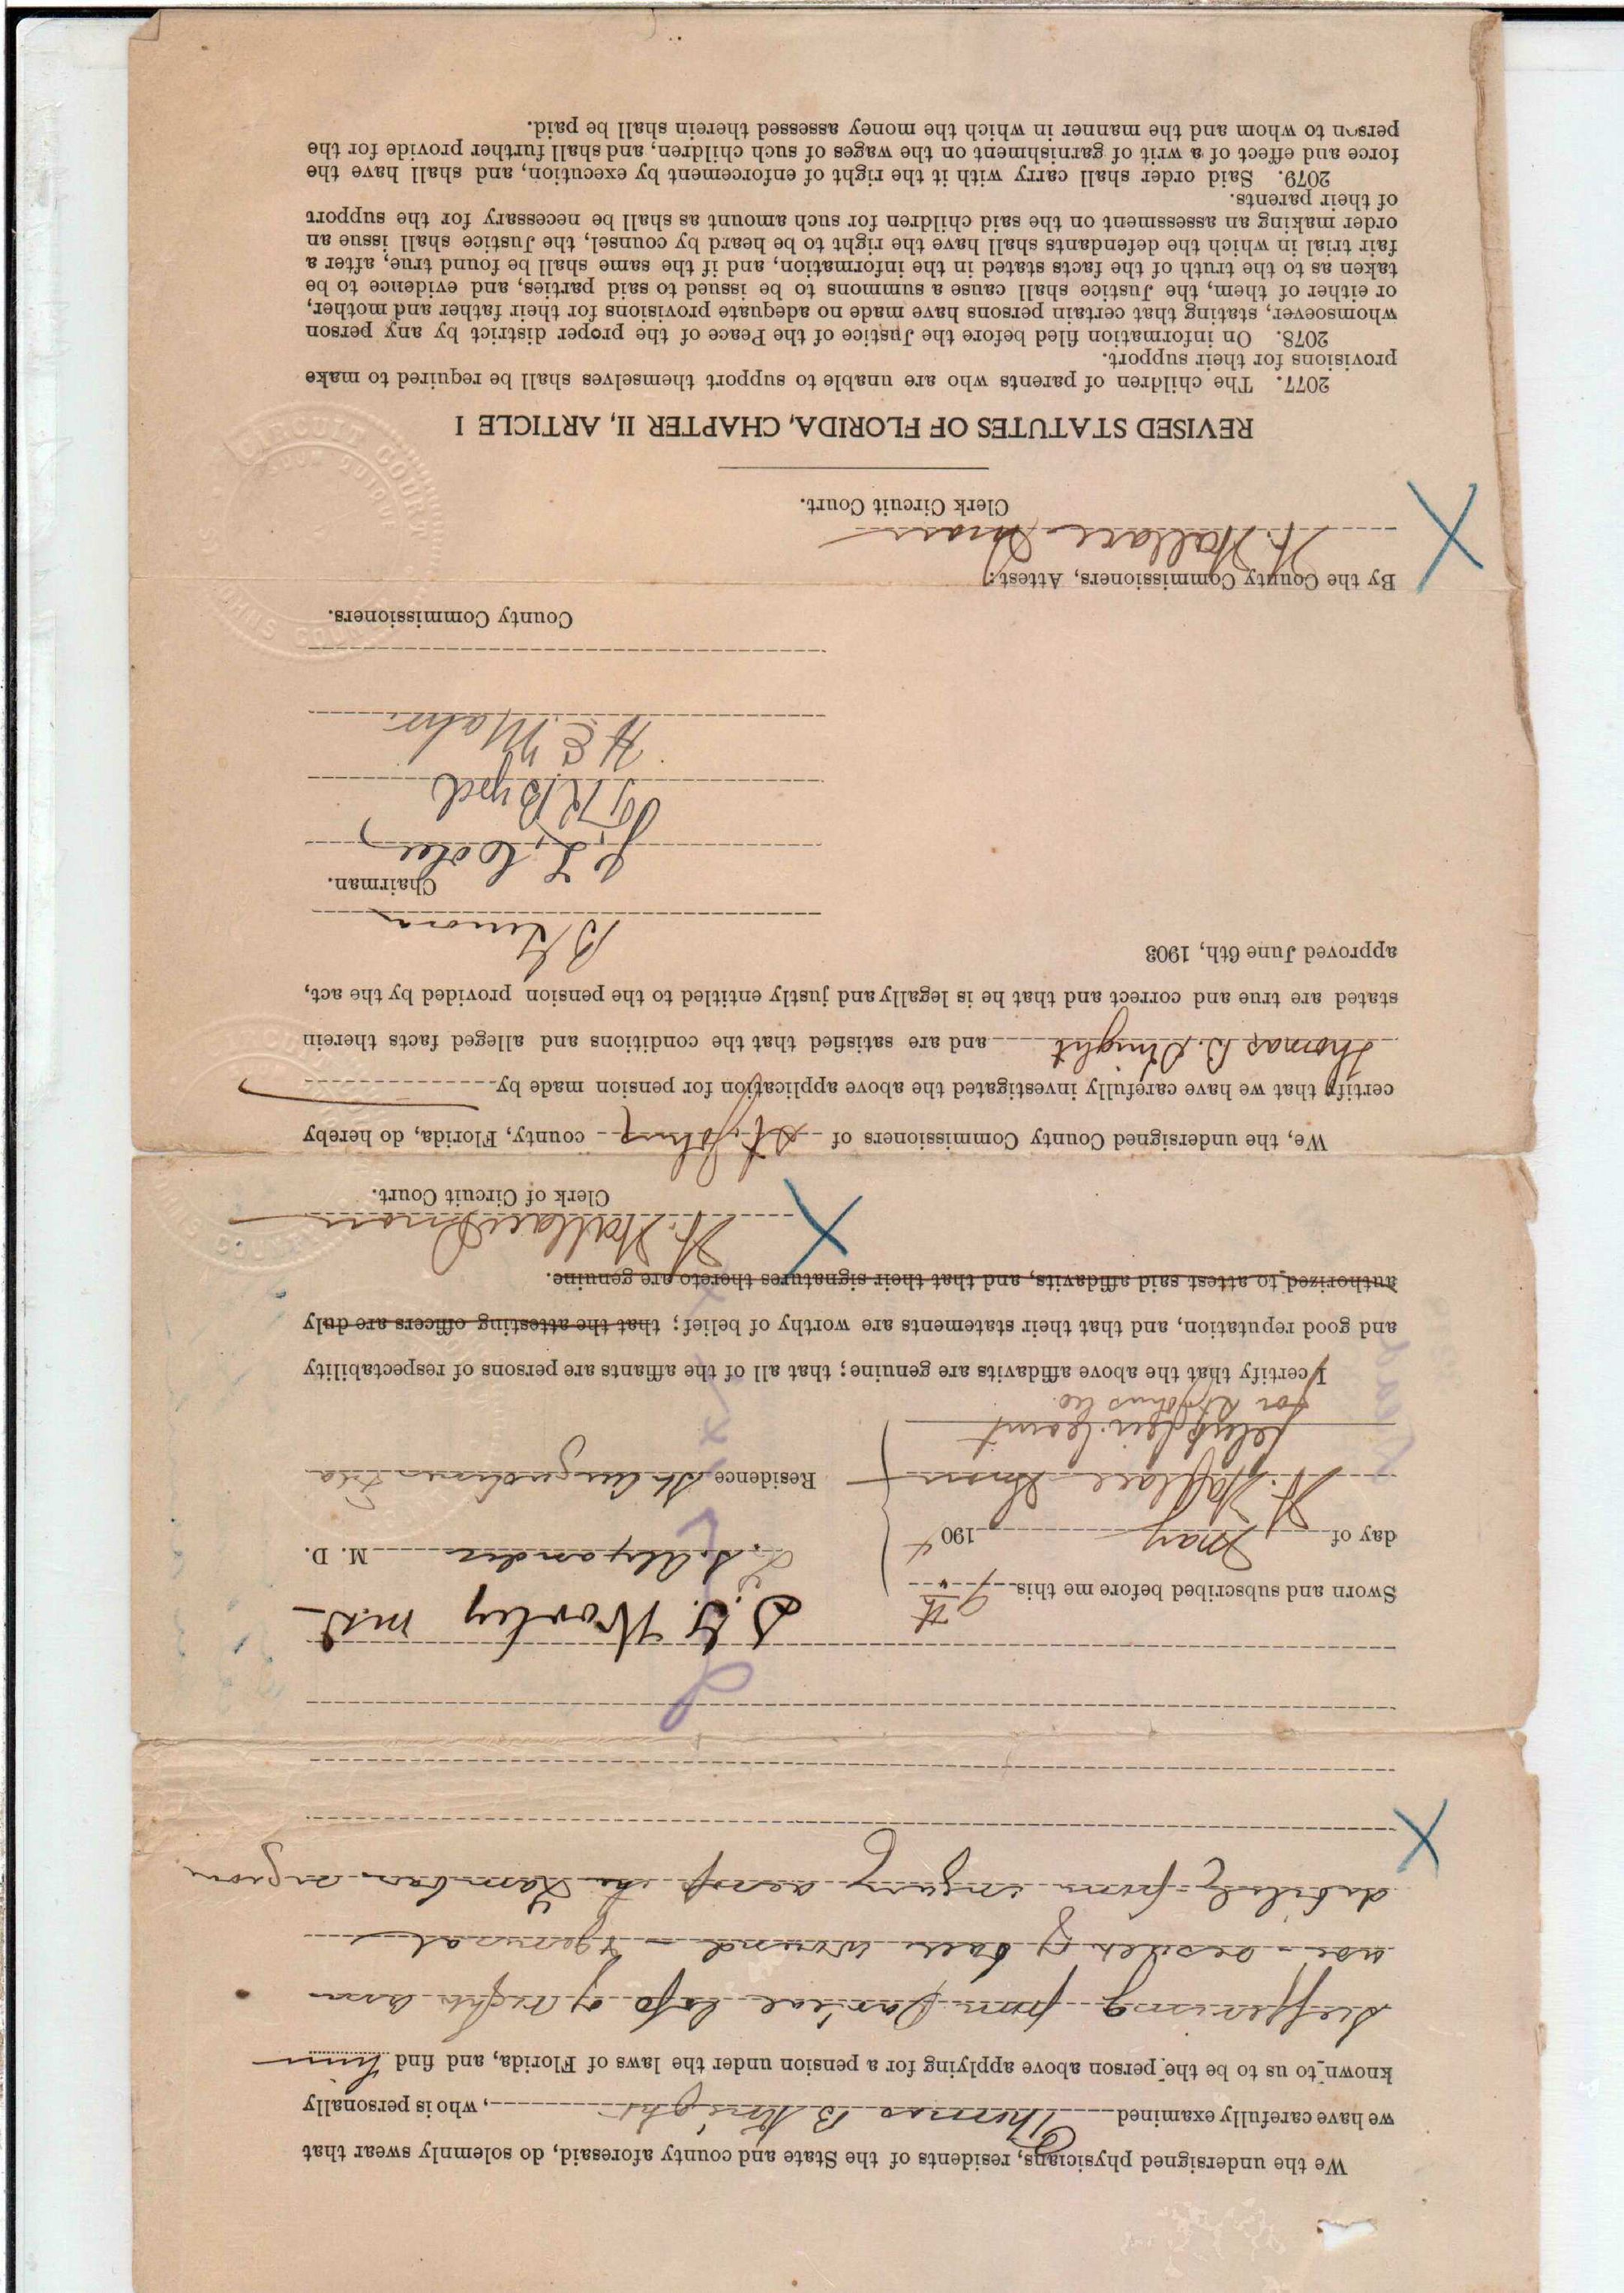 We the undersigned physicians, residents of the State and county aforesaid, do solemnly swear that
we have carefully examined Thomas B Knight, who is personally
known to us to be the person above applying for a pension under the laws of Florida, and find him
suffering from partial loss of right arm
use - besides of ball wound - & general
debility from injury across the Lumbar region
D. G. Worley M.D.
Sworn and subscribed before me this 9th
S. Alexander M. D.
day of May 1904
W. Wallace Snow
Residence St Augustine Fla
Clerk Cir. Court
for St Johns Co.
I certify that the above affidavits are genuine; that all of the affiants are persons of respectability
and good reputation, and that their statements are worthy of belief; that the attesting officers are duly
authorized to attest said affidavits, and that their signatures thereto are genuine.
W. Wallace Snow
Clerk of Circuit Court.
We, the undersigned County Commissioners of St. Johns county, Florida, do hereby
certify that we have carefully investigated the above application for pension made by
Thomas B. Knight and are satisfied that the conditions and alleged facts therein
stated are true and correct and that he is legally and justly entitled to the pension provided by the act,
approved June 6th, 1903
B Genovar
Chairman.
J. L. Colee
J R Byrd
H E Mahr
County Commissioners.
By the County Commissioners, Attest:
W. Wallace Snow
Clerk Circuit Court.
REVISED STATUTES OF FLORIDA, CHAPTER II, ARTICLE I
2077. The children of parents who are unable to support themselves shall be required to make
provisions for their support.
2078. On information filed before the Justice of the Peace of the proper district by any person
whomsoever, stating that certain persons have made no adequate provisions for their father and mother,
or either of them, the Justice shall cause a summons to be issued to said parties, and evidence to be
taken as to the truth of the facts stated in the information, and if the same shall be found true, after a
fair trial in which the defendants shall have the right to be heard by counsel, the Justice shall issue an
order making an assessment on the said children for such amount as shall be necessary for the support
of their parents.
2079. Said order shall carry with it the right of enforcement by execution, and shall have the
force and effect of a writ of garnishment on the wages of such children, and shall further provide for the
person to whom and the manner in which the money assessed therein shall be paid.
CIRCUIT COURT